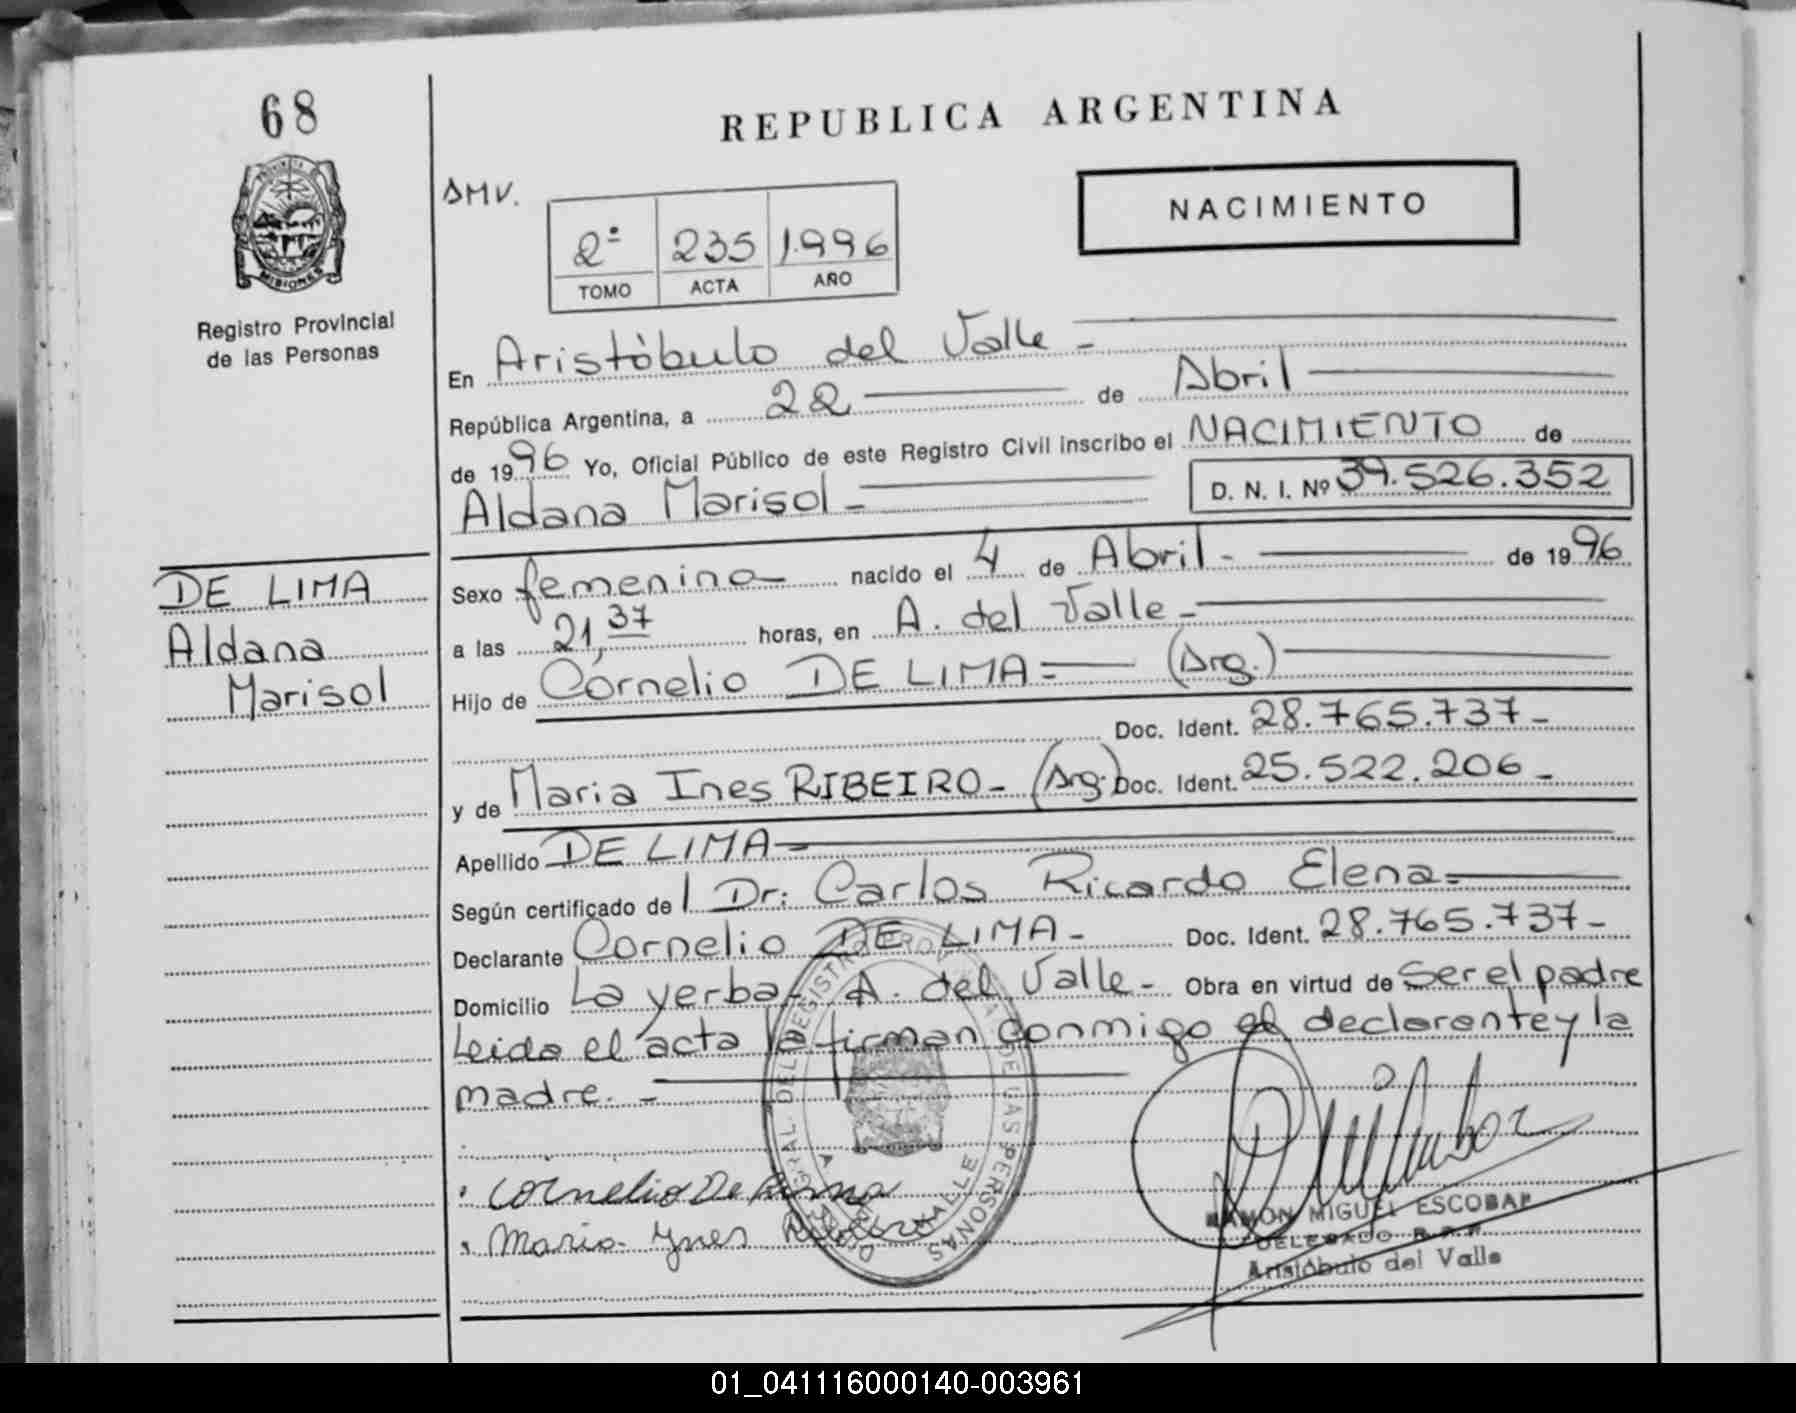 68
PROVINCIA DE
MISIONES
Registro Provincial
de las Personas
DE LIMA
Aldana
Marisol
REPUBLICA ARGENTINA
NACIMIENTO
2º 235 1.996
TOMO ACTA AÑO
En Aristóbulo del Valle -
República Argentina, a 22 de Abril
de 1996 Yo, Oficial Público de este Registro Civil inscribo el NACIMIENTO de
Aldana Marisol - D. N. I. Nº 39.526.352
Sexo femenino nacido el 4 de Abril - de 1996
a las 21,37 horas, en A. del Valle -
Hijo de Cornelio DE LIMA = (Arg.)
Doc. Ident. 28.765.737 -
y de Maria Ines RIBEIRO - (Arg.) Doc. Ident. 25.522.206 -
Apellido DE LIMA -
Según certificado de l Dr: Carlos Ricardo Elena =
Declarante Cornelio DE LIMA - Doc. Ident. 28.765.737 -
Domicilio La yerba - A. del Valle - Obra en virtud de Ser el padre
Leida el acta la firman conmigo el declarante y la
madre. -
Cornelio De Lima
Maria Ynes
RAMON MIGUEL ESCOBAR
DELEGADO R.P.P.
Aristóbulo del Valle
01_041116000140-003961